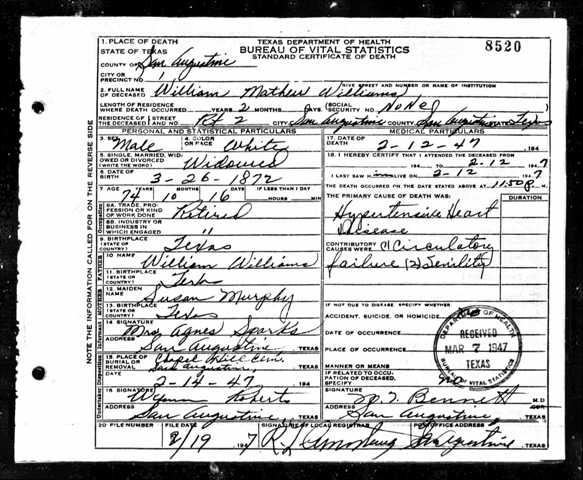 TEXAS DEPARTMENT OF HEALTH
BUREAU OF VITAL STATISTICS
STANDARD CERTIFICATE OF DEATH
8520
1. PLACE OF DEATH
STATE OF TEXAS
COUNTY OF San Augustine
CITY OR PRECINCT NO. 1
GIVE STREET AND NUMBER OR NAME OF INSTITUTION
2. FULL NAME OF DECEASED William Mathew Williams
LENGTH OF RESIDENCE WHERE DEATH OCCURRED YEARS 2 MONTHS DAYS (SOCIAL SECURITY NO. None)
RESIDENCE OF THE DECEASED STREET AND NO. Rt 2 CITY San Augustine COUNTY San Augustine STATE Texas
PERSONAL AND STATISTICAL PARTICULARS
3. SEX Male
4. COLOR OR RACE White
5. SINGLE, MARRIED, WIDOWED OR DIVORCED (WRITE THE WORD) Widowed
6. DATE OF BIRTH 3-26-1872
7. AGE YEARS MONTHS DAYS IF LESS THAN 1 DAY
74 10 16 HOURS MIN
8A. TRADE, PROFESSION OR KIND OF WORK DONE Retired
8B. INDUSTRY OR BUSINESS IN WHICH ENGAGED "
9. BIRTHPLACE (STATE OR COUNTRY) Texas
10. NAME William Williams
11. BIRTHPLACE (STATE OR COUNTRY)
12. MAIDEN NAME Susan Murphy
13. BIRTHPLACE (STATE OR COUNTRY) Texas
14. SIGNATURE Mrs Agnes Sparks
ADDRESS San Augustine, TEXAS
15. PLACE OF BURIAL OR REMOVAL Chapel Hill Cem.
San Augustine, TEXAS
DATE 2-14-47 194
16. SIGNATURE Wynn Roberts
ADDRESS San Augustine, TEXAS
MEDICAL PARTICULARS
17. DATE OF DEATH 2-12-47 194
18. I HEREBY CERTIFY THAT I ATTENDED THE DECEASED FROM
194 TO 2-12 1947
I LAST SAW him ALIVE ON 2-12 1947
THE DEATH OCCURRED ON THE DATE STATED ABOVE AT 11:50 P. M.
THE PRIMARY CAUSE OF DEATH WAS: DURATION
Hypertensive Heart
Disease
CONTRIBUTORY CAUSES WERE (1) Circulatory
failure (2) Senility
IF NOT DUE TO DISEASE, SPECIFY WHETHER:
ACCIDENT, SUICIDE, OR HOMICIDE
DATE OF OCCURRENCE
PLACE OF OCCURRENCE
MANNER OR MEANS
IF RELATED TO OCCUPATION OF DECEASED, SPECIFY no
DEPARTMENT OF HEALTH
RECEIVED
MAR 7 1947
TEXAS
BUREAU VITAL STATISTICS
SIGNATURE Bennett M.D.
ADDRESS San Augustine, TEXAS
20 FILE NUMBER FILE DATE SIGNATURE OF LOCAL REGISTRAR POST OFFICE ADDRESS
2/19 1947 San Augustine TEXAS
NOTE THE INFORMATION CALLED FOR ON THE REVERSE SIDE